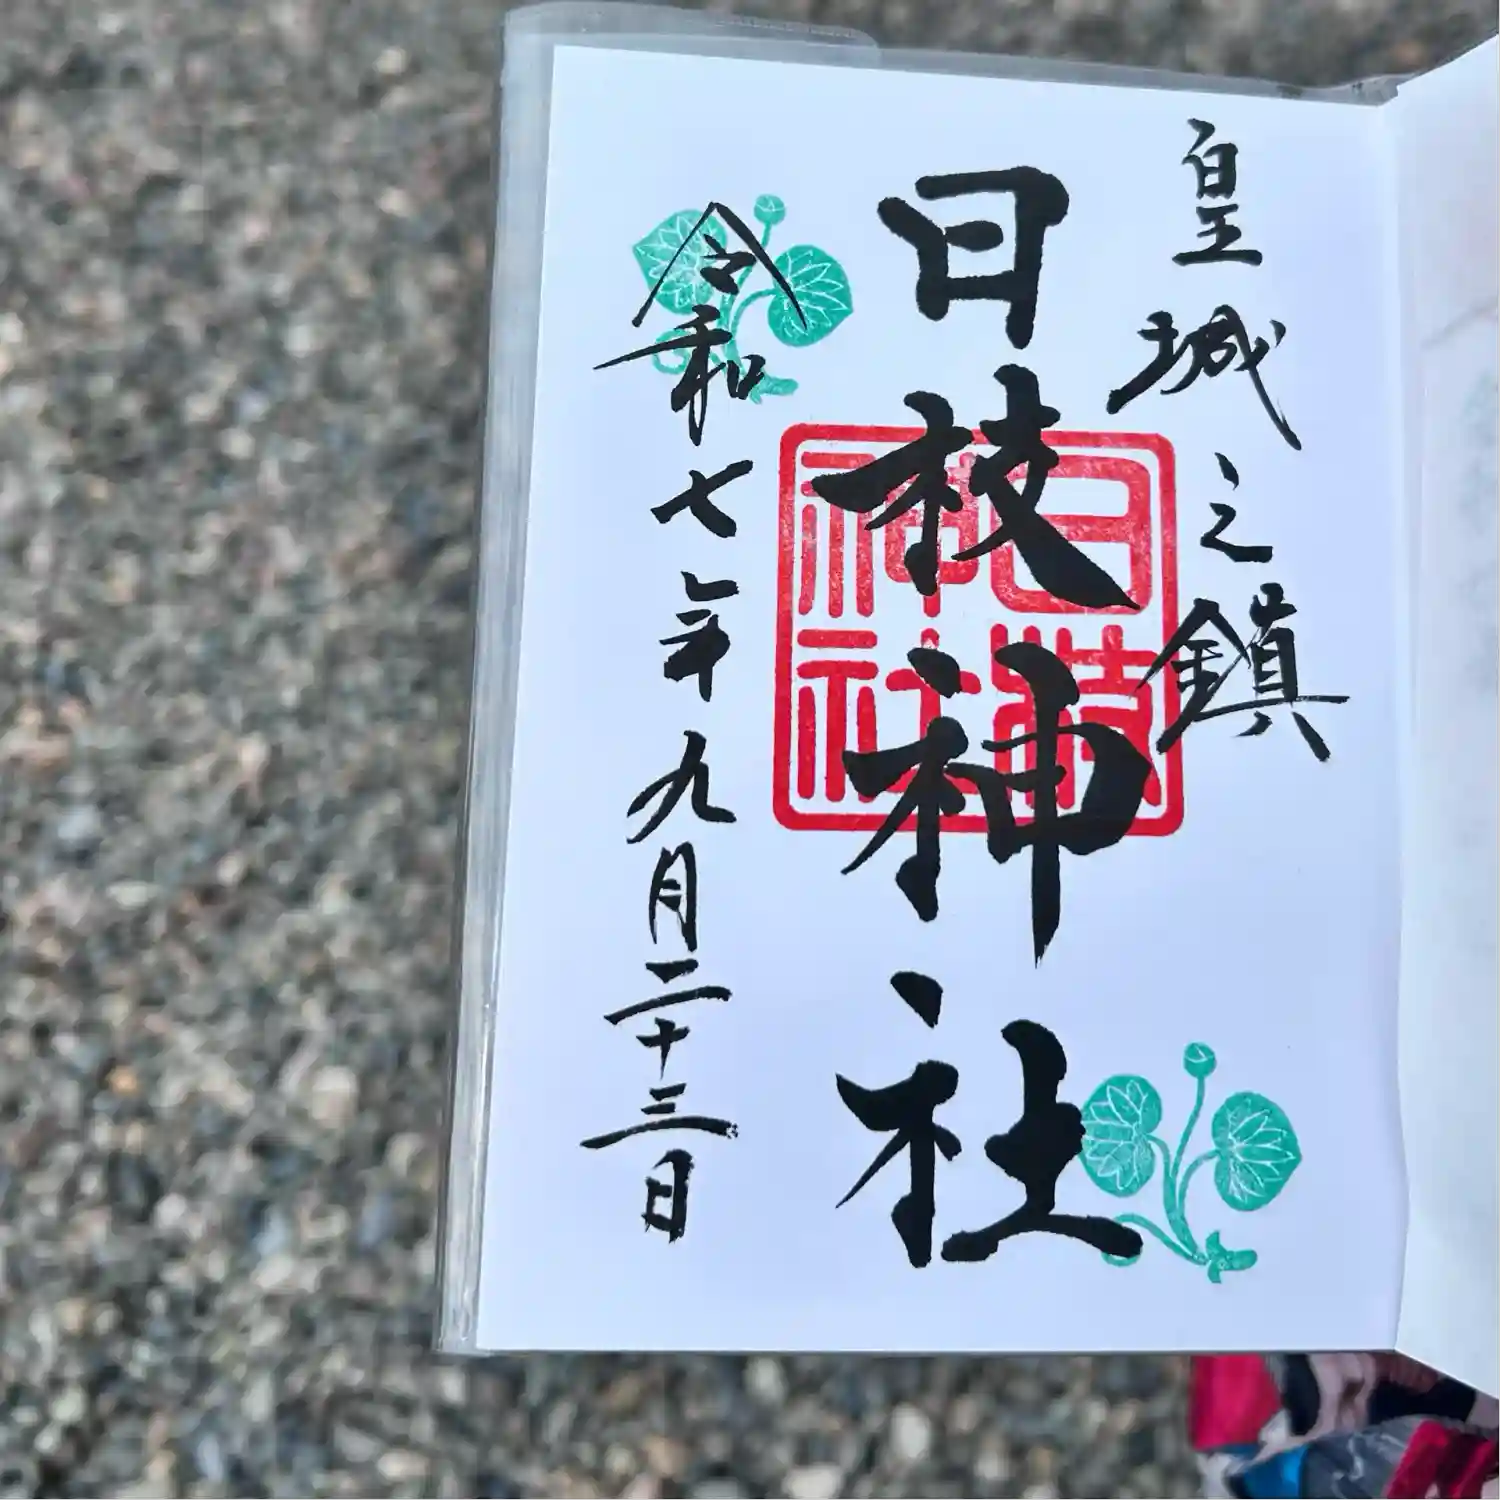 皇城之鎮
日枝神社
日枝神社
令和七年九月二十三日